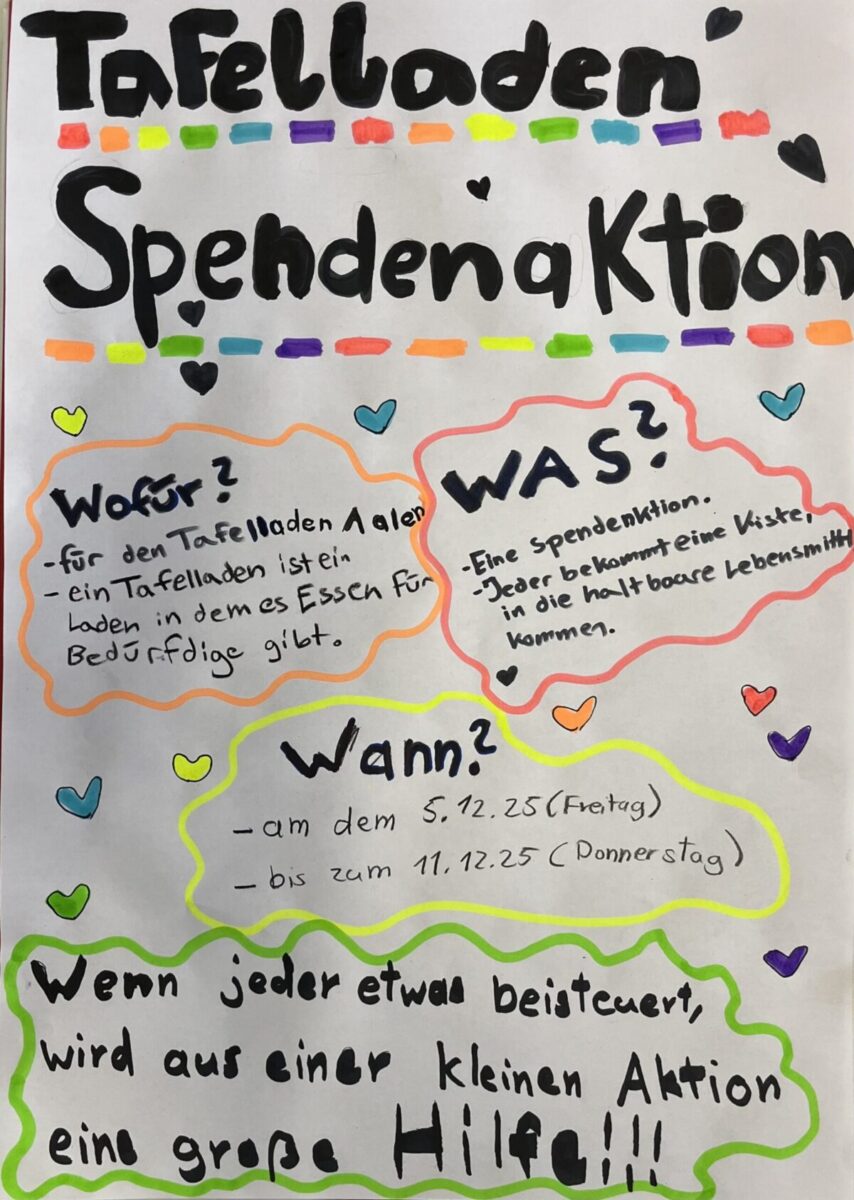 Tafelladen
Spendenaktion
Wofür?
-für den Tafelladen Aalen
- ein Tafelladen ist ein
Laden in dem es Essen für
Bedürfdige gibt.
WAS?
-Eine Spendenktion.
-Jeder bekommt eine Kiste,
in die haltbare Lebensmittl
kommen.
Wann?
- am dem 5.12.25 (Freitag)
- bis zum 11.12.25 (Donnerstag)
Wenn jeder etwas beisteuert,
wird aus einer kleinen Aktion
eine große Hilfe!!!